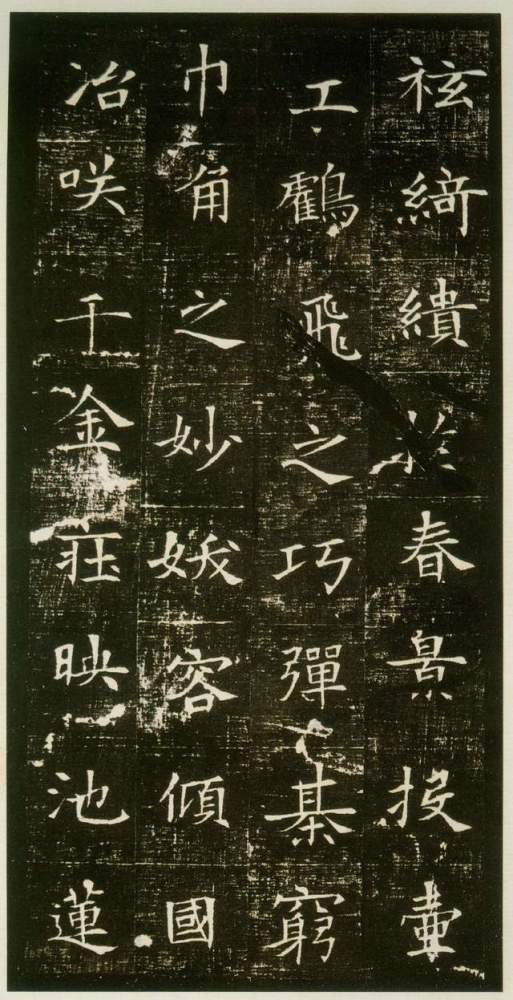 袨綺繢於春景投壺
工鸖飛之巧彈棊窮
巾角之妙妖容傾國
冶咲千金莊映池蓮